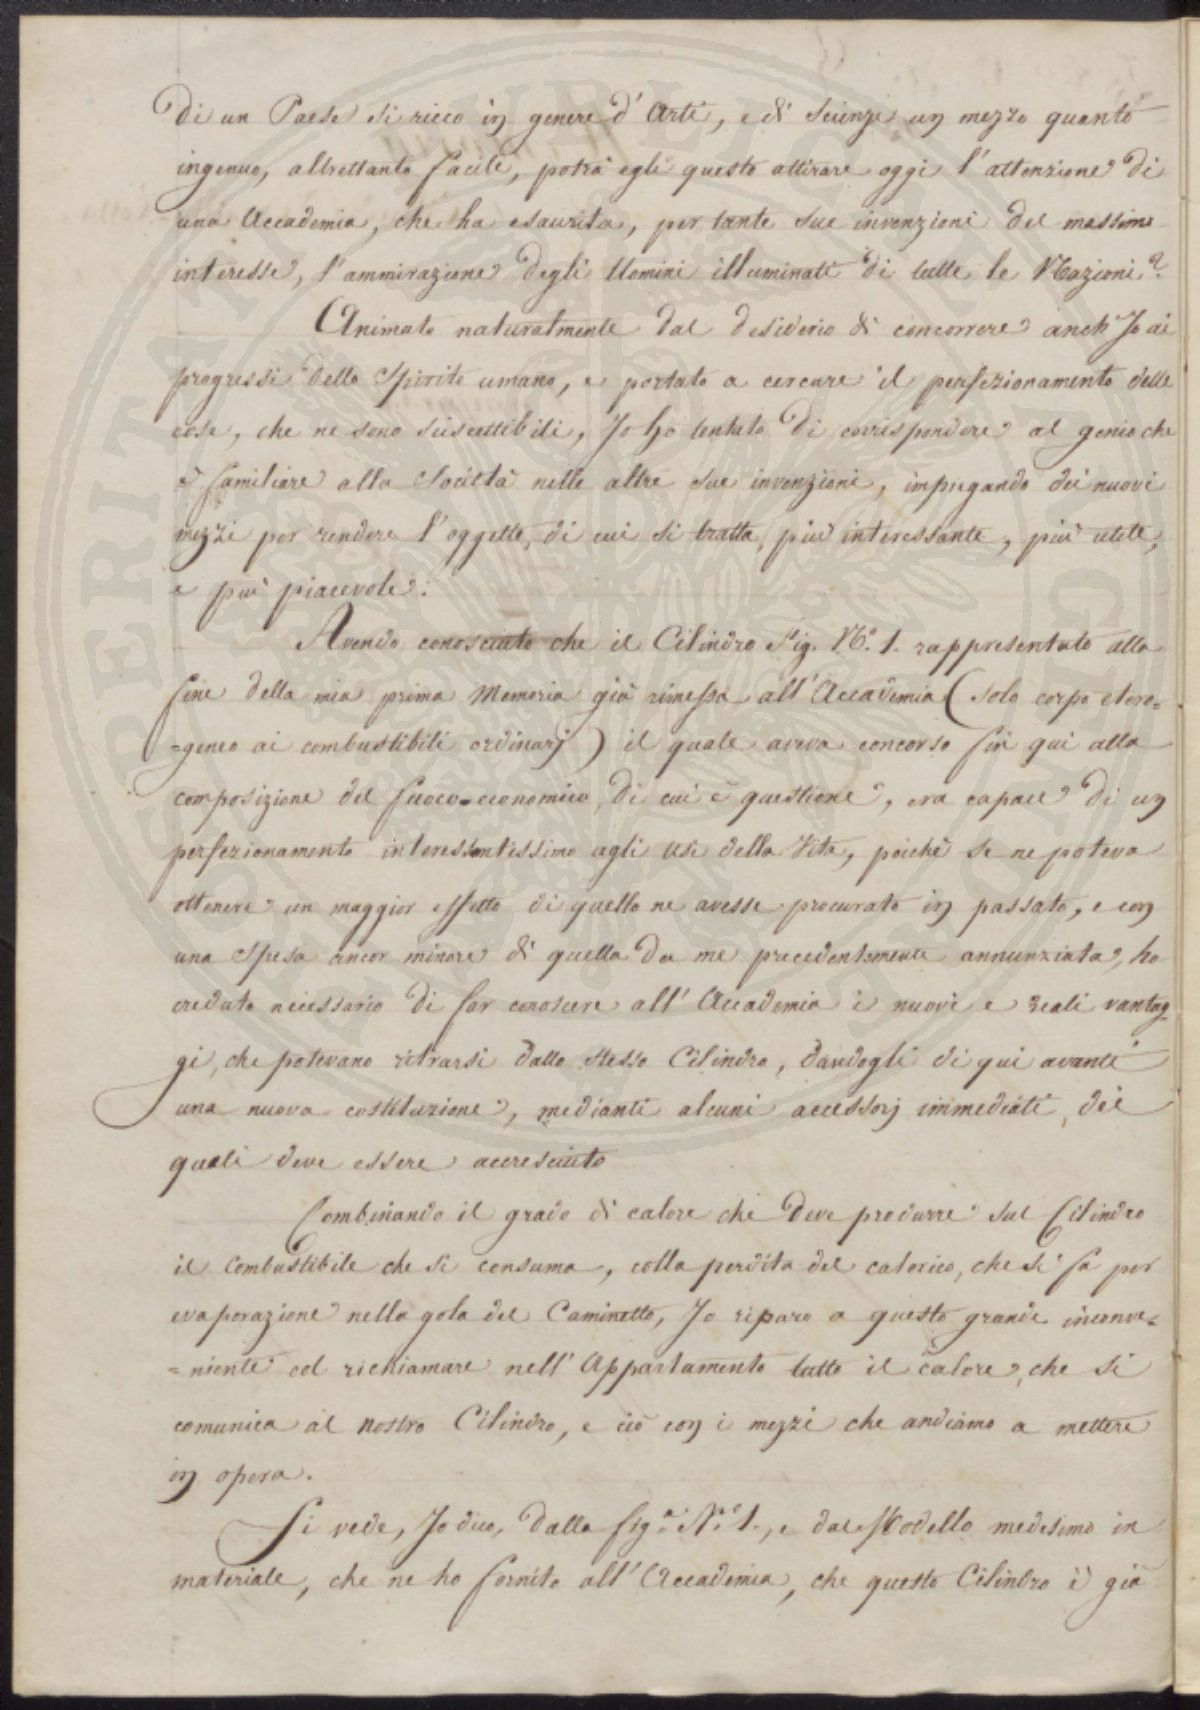 Di un Paese si ricco in genere d'Arti, e di Scienze un mezzo quanto
ingenuo, altrettanto facile, potrà egli questo attirare oggi l'attenzione di
una Accademia, che ha esaurita, per tante sue invenzioni del massimo
interesse, l'ammirazione degli Uomini illuminati di tutte le Nazioni?
Animato naturalmente dal desiderio di concorrere anch'Io ai
progressi dello Spirito umano, e portato a cercare il perfezionamento delle
cose, che ne sono suscettibili, Io ho tentato di corrispondere al genio che
è familiare alla Società nelle altre sue invenzioni, impiegando dei nuovi
mezzi per rendere l'oggetto, di cui si tratta, più interessante, più utile,
e più piacevole.
Avendo conosciuto che il Cilindro Fig. N.º 1. rappresentato alla
fine della mia prima Memoria già rimessa all'Accademia (solo corpo etero=
=geneo ai combustibili ordinarj) il quale aveva concorso fin qui alla
composizione del fuoco=economico, di cui è questione, era capace di un
perfezionamento interessantissimo agli usi della Vita, poichè se ne poteva
ottenere un maggior effetto di quello ne avesse procurato in passato, e con
una spesa ancor minore di quella da me precedentemente annunziata, ho
creduto necessario di far conoscere all'Accademia i nuovi e reali vantag-
gi, che potevano ritrarsi dallo stesso Cilindro, dandogli di qui avanti
una nuova costituzione, medianti alcuni accessorj immediati, dei
quali deve essere accresciuto
Combinando il grado di calore che deve produrre sul Cilindro
il combustibile che si consuma, colla perdita del calorico, che si fa per
evaporazione nella gola del Caminetto, Io riparo a questo grande inconve=
=niente col richiamare nell'Appartamento tutto il calore, che si
comunica al nostro Cilindro, e ciò con i mezzi che andiamo a mettere
in opera.
Si vede, Io dico, dalla fig.ª N.º 1., e dal Modello medesimo in
materiale, che ne ho fornito all'Accademia, che questo Cilindro è già